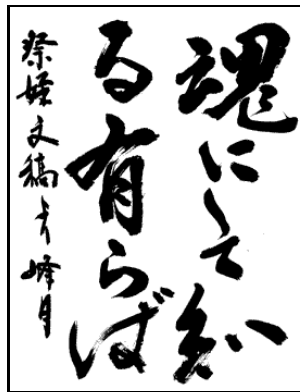 魂にして知
る有らば
祭姪文稿より 峰月